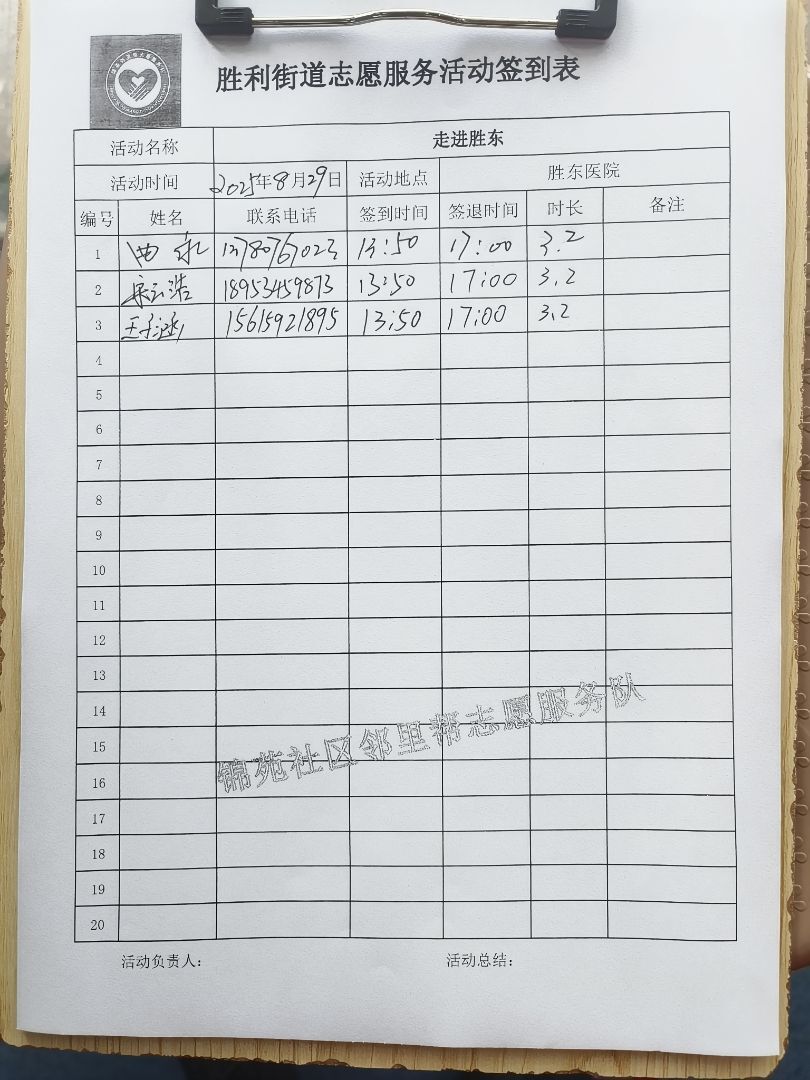 胜利街道志愿服务活动签到表
活动名称 走进胜东
活动时间 2025年8月29日 活动地点 胜东医院
编号 姓名 联系电话 签到时间 签退时间 时长 备注
1 13780767023 13:50 17:00 3.2
2 18953459873 13:50 17:00 3.2
3 15615921895 13:50 17:00 3.2
4
5
6
7
8
9
10
11
12
13
14
15
16
17
18
19
20
锦苑社区邻里帮志愿服务队
活动负责人： 活动总结：